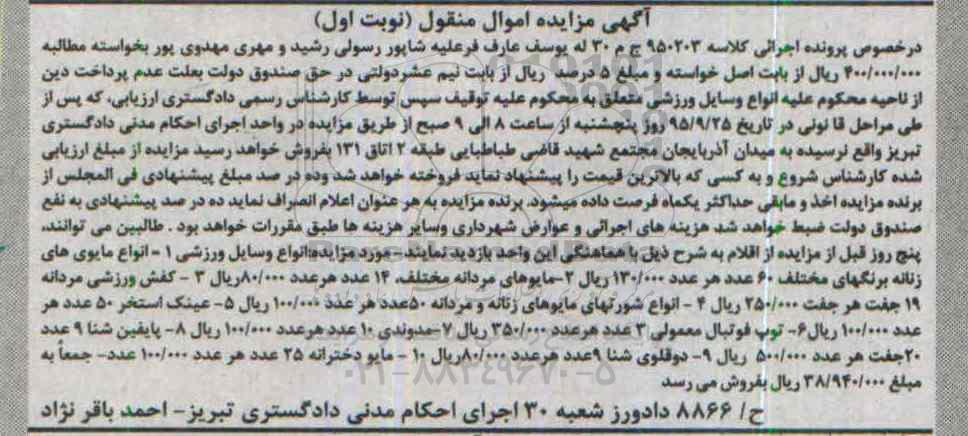 آگهی مزایده اموال منقول (نوبت اول)
درخصوص پرونده اجرائی کلاسه ۹۵۰۲۰۳ ج م ۳۰ له یوسف عارف فرعلیه شاپور رسولی رشید و مهری مهدوی پور بخواسته مطالبه
۴۰۰/۰۰۰/۰۰۰ ریال از بابت اصل خواسته و مبلغ ۵ درصد ریال از بابت نیم عشردولتی در حق صندوق دولت بعلت عدم پرداخت دین
از ناحیه محکوم علیه انواع وسایل ورزشی متعلق به محکوم علیه توقیف سپس توسط کارشناس رسمی دادگستری ارزیابی، که پس از
طی مراحل قا نونی در تاریخ ۹۵/۹/۲۵ روز پنجشنبه از ساعت ۸ الی ۹ صبح از طریق مزایده در واحد اجرای احکام مدنی دادگستری
تبریز واقع نرسیده به میدان آذربایجان مجتمع شهید قاضی طباطبایی طبقه ۲ اتاق ۱۳۱ بفروش خواهد رسید مزایده از مبلغ ارزیابی
شده کارشناس شروع و به کسی که بالاترین قیمت را پیشنهاد نماید فروخته خواهد شد وده در صد مبلغ پیشنهادی فی المجلس از
برنده مزایده اخذ و مابقی حداکثر یکماه فرصت داده میشود. برنده مزایده به هر عنوان اعلام انصراف نماید ده در صد پیشنهادی به نفع
صندوق دولت ضبط خواهد شد هزینه های اجرائی و عوارض شهرداری وسایر هزینه ها طبق مقررات خواهد بود . طالبین می توانند،
پنج روز قبل از مزایده از اقلام به شرح ذیل با هماهنگی این واحد بازدید نمایند- مورد مزایده:انواع وسایل ورزشی ۱ - انواع مایوی های
زنانه برنگهای مختلف ۶۰ عدد هر عدد ۱۳۰/۰۰۰ ریال ۲-مایوهای مردانه مختلف، ۱۴ عدد هرعدد ۸۰/۰۰۰ریال ۳ - کفش ورزشی مردانه
۱۹ جفت هر جفت ۲۵۰/۰۰۰ ریال ۴ - انواع شورتهای مایوهای زنانه و مردانه ۵۰عدد هر عدد ۱۰۰/۰۰۰ ریال ۵- عینک استخر ۵۰ عدد هر
عدد ۱۰۰/۰۰۰ ریال ۶- توپ فوتبال معمولی ۳ عدد هرعدد ۳۵۰/۰۰۰ ریال ۷-مدوندی ۱۰ عدد هرعدد ۱۰۰/۰۰۰ ریال ۸- پایفین شنا ۹ عدد
۲۰جفت هر عدد ۵۰۰/۰۰۰ ریال ۹- دوقلوی شنا ۹عدد هرعدد ۸۰/۰۰۰ریال ۱۰ - مایو دخترانه ۲۵ عدد هر عدد ۱۰۰/۰۰۰ عدد- جمعاً به
مبلغ ۳۸/۹۴۰/۰۰۰ ریال بفروش می رسد
۰۲۱-۸۸۳۴۹۶۷۰-۵
ح/ ۸۸۶۶ دادورز شعبه ۳۰ اجرای احکام مدنی دادگستری تبریز- احمد باقر نژاد